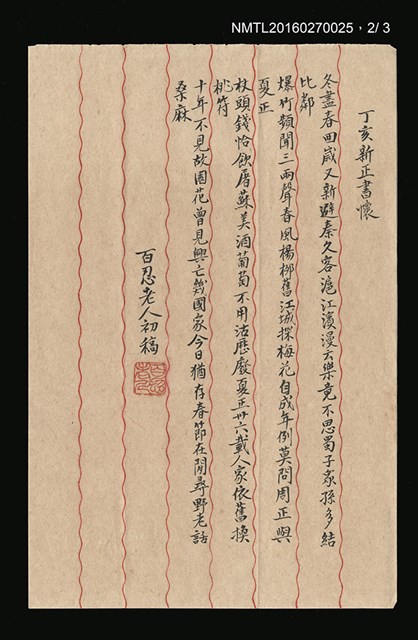 NMTL20160270025，2/3
丁亥新正書懷
冬盡春回歲又新避秦久客滬江濱漫云樂竟不思蜀子女孫多結
比鄰
爆竹頻聞三兩聲春風楊柳舊江城探梅花自成年例莫問周正與
夏正
杖頭錢恰飲屠蘇美酒葡萄不用沽歷廢夏正卅六載人家依舊換
桃符
十年不見故園花曾見興亡幾國家今日猶存春節在閒尋野老話
桑麻
百忍老人初稿